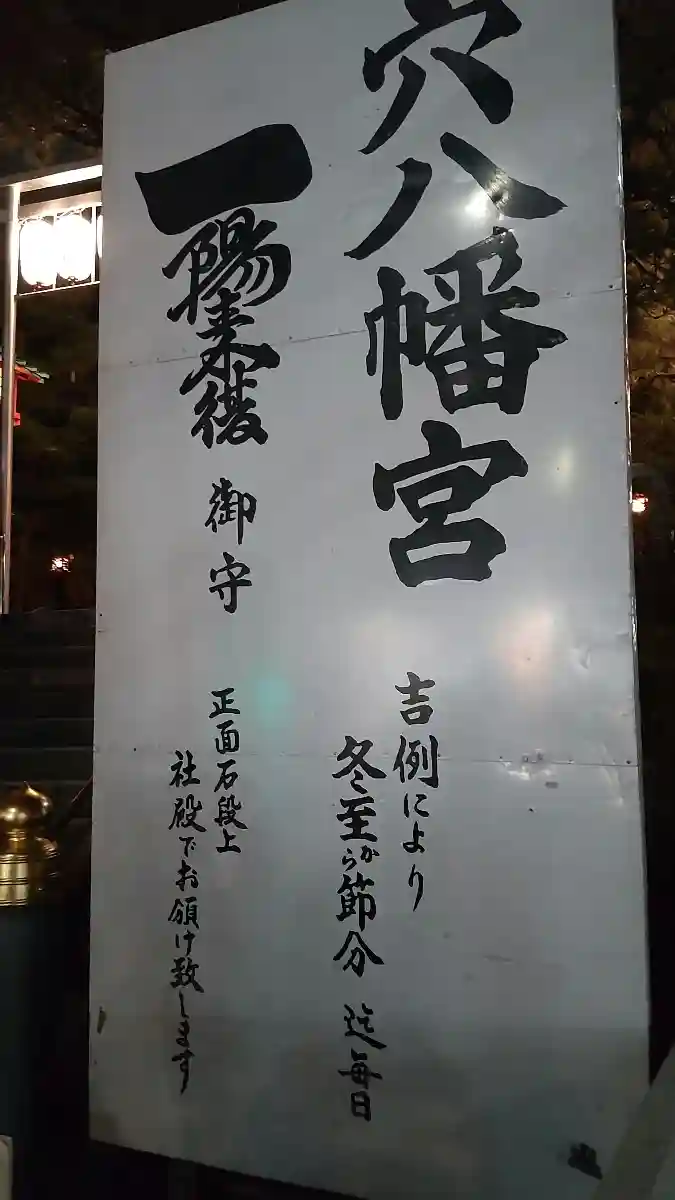 穴八幡宮
吉例により
冬至から節分迄毎日
一陽来復 御守
正面石段上
社殿でお頒け致します